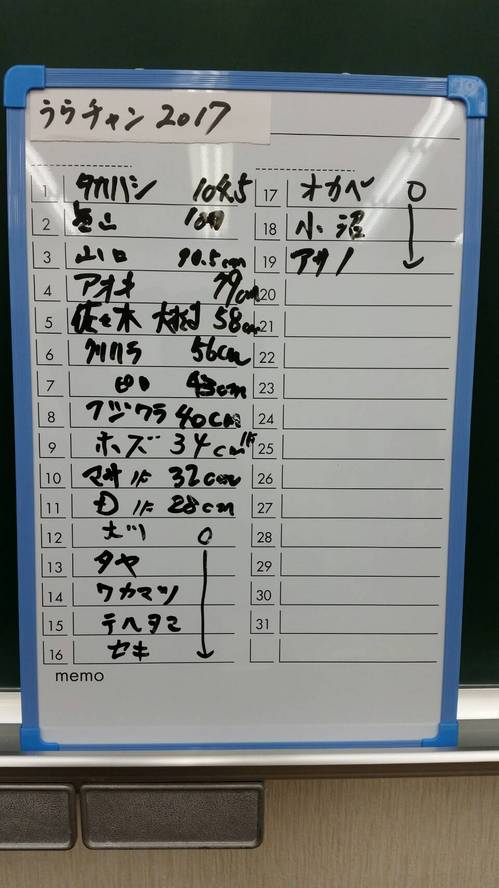 うらチャン2017
1 タカハシ 104.5
2 山
3 山口 90.5cm
4 アオキ 79cm
5 佐々木 大村 58cm
6 56cm
7 43cm
8 フジワラ 40cm
9 ホズ 34cm 1F
10 マサ 1F 32cm
11 1F 28cm
12 大ツ 0
13 タヤ
14 ワカマツ
15 テヘタマ
16 セキ
17 オカベ 0
18 小沼
19 アサノ
20
21
22
23
24
25
26
27
28
29
30
31
memo